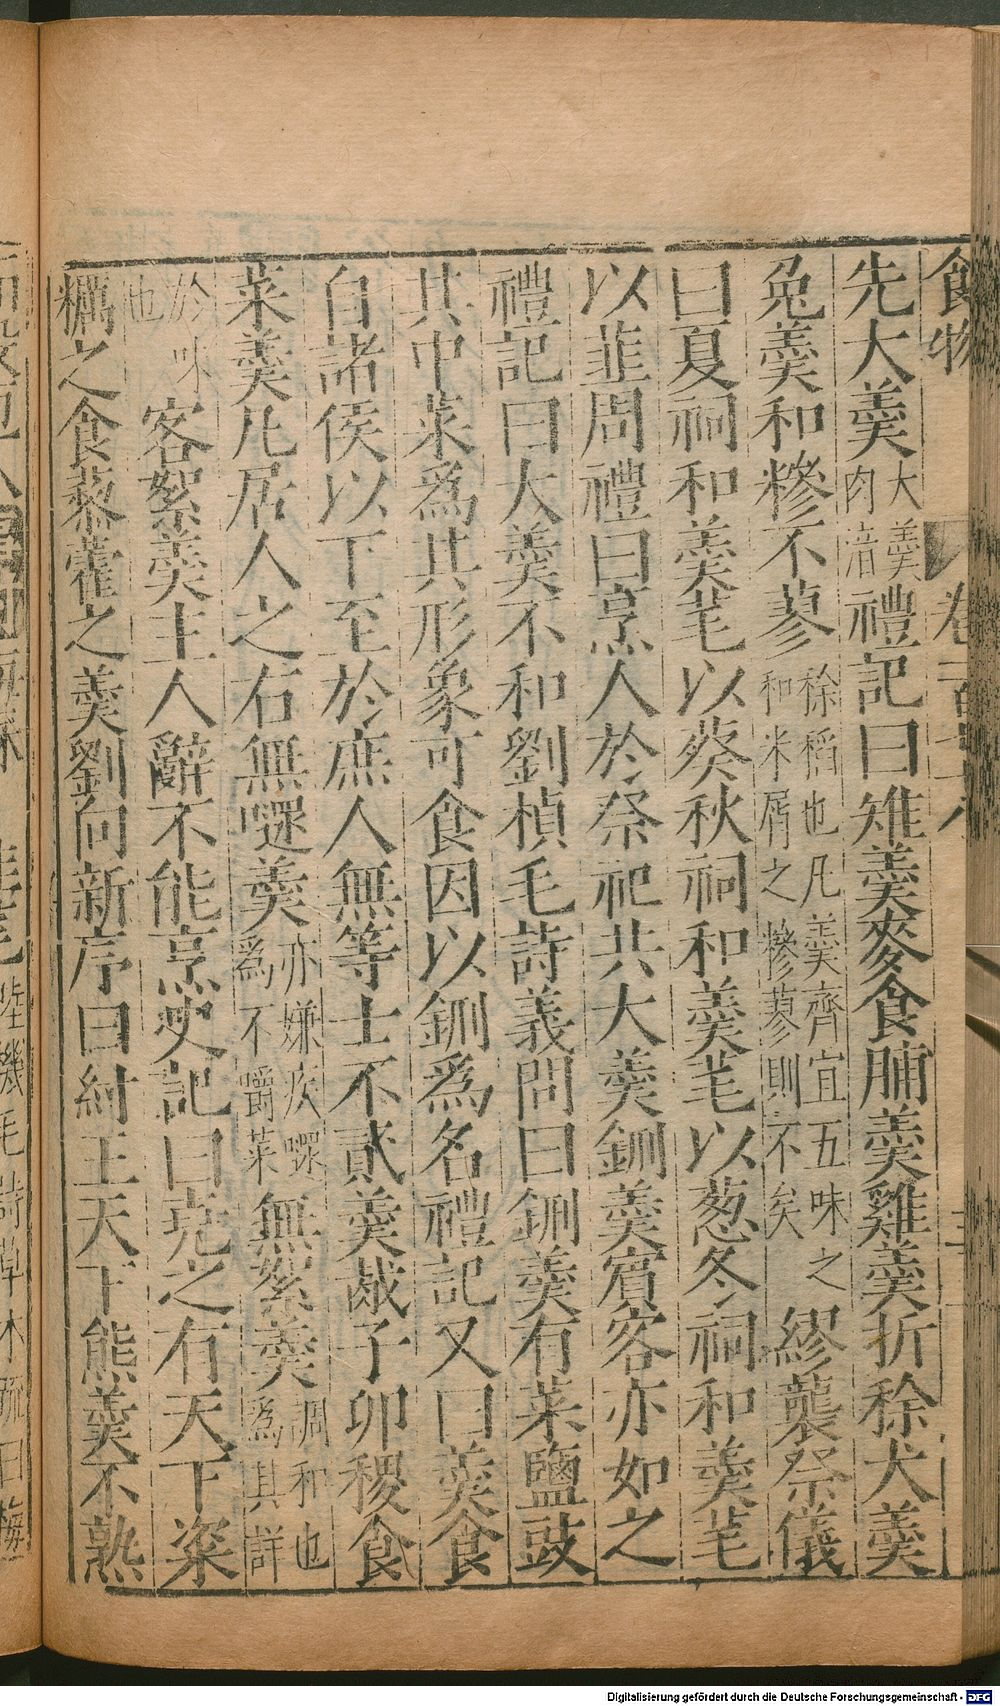 食物
先大羹大羹肉湆禮記曰雉羹麥食脯羹雞羹折稌犬羹
兔羹和糝不蓼稌稻也凡羹齊宜五味之和米屑之糝蓼則不矣繆襲祭儀
曰夏祠和羹芼以葵秋祠和羹芼以葱冬祠和羹芼
以韮周禮曰烹人於祭祀共大羹鉶羹賓客亦如之
禮記曰大羹不和劉楨毛詩義問曰鉶羹有菜鹽豉
其中菜爲其形象可食因以鉶爲名禮記又曰羹食
自諸侯以下至於庶人無等士不貳羹胾子卯稷食
菜羹凡居人之右無嚃羹亦嫌疾嚃爲不嚼菜無絮羹調和也爲其詳
於味也客絮羹主人辭不能烹史記曰堯之有天下粢
糲之食藜藿之羹劉向新序曰紂王天下熊羹不熟
Digitalisierung gefördert durch die Deutsche Forschungsgemeinschaft - DFG